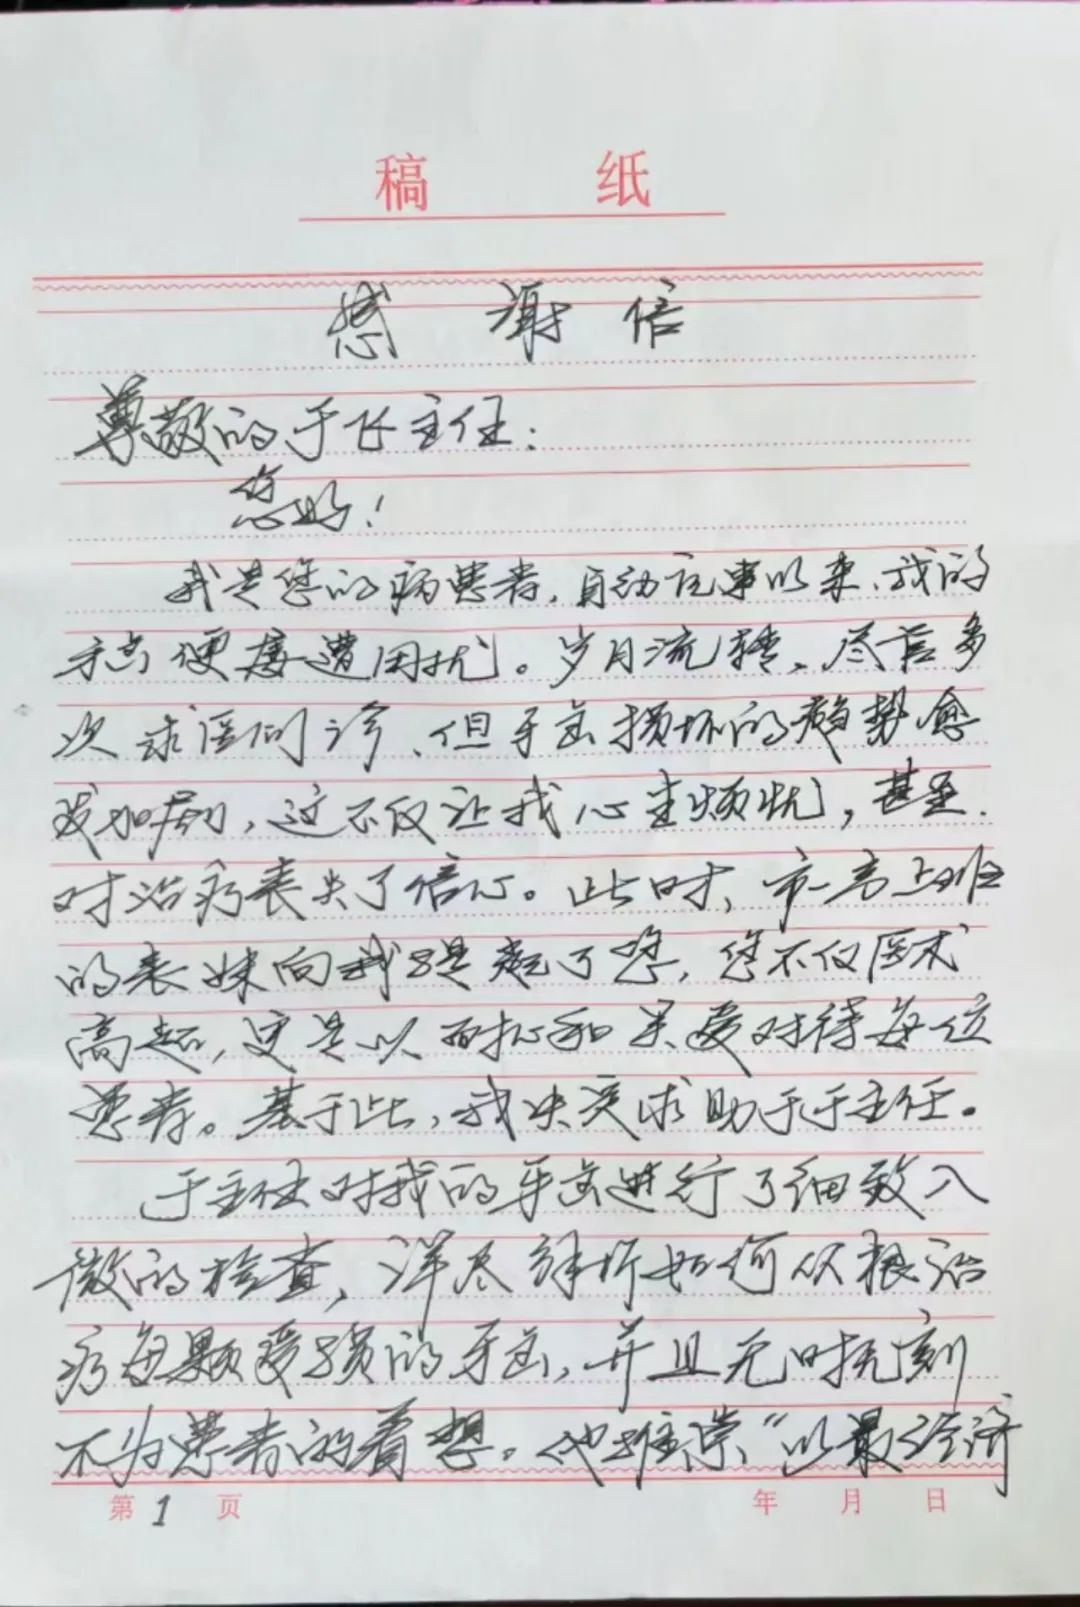 稿 纸
感 谢 信
尊敬的于飞主任：
您好！
我是您的病患者，自幼记事以来、我的
牙齿便屡遭困扰。岁月流转、尽管多
次求医问诊、但牙齿损坏的趋势愈
发加剧，这不仅让我心生烦忧，甚至
对治疗丧失了信心。此时、市一高上班
的表妹向我提起了您，您不仅医术
高超，更是以耐心和关爱对待每位
患者。基于此，我决定求助于于主任。
于主任对我的牙齿进行了细致入
微的检查，详尽剖析如何从根治
疗每颗受损的牙齿，并且无时无刻
不为患者的着想。他推崇“以最经济
第 1 页 年 月 日